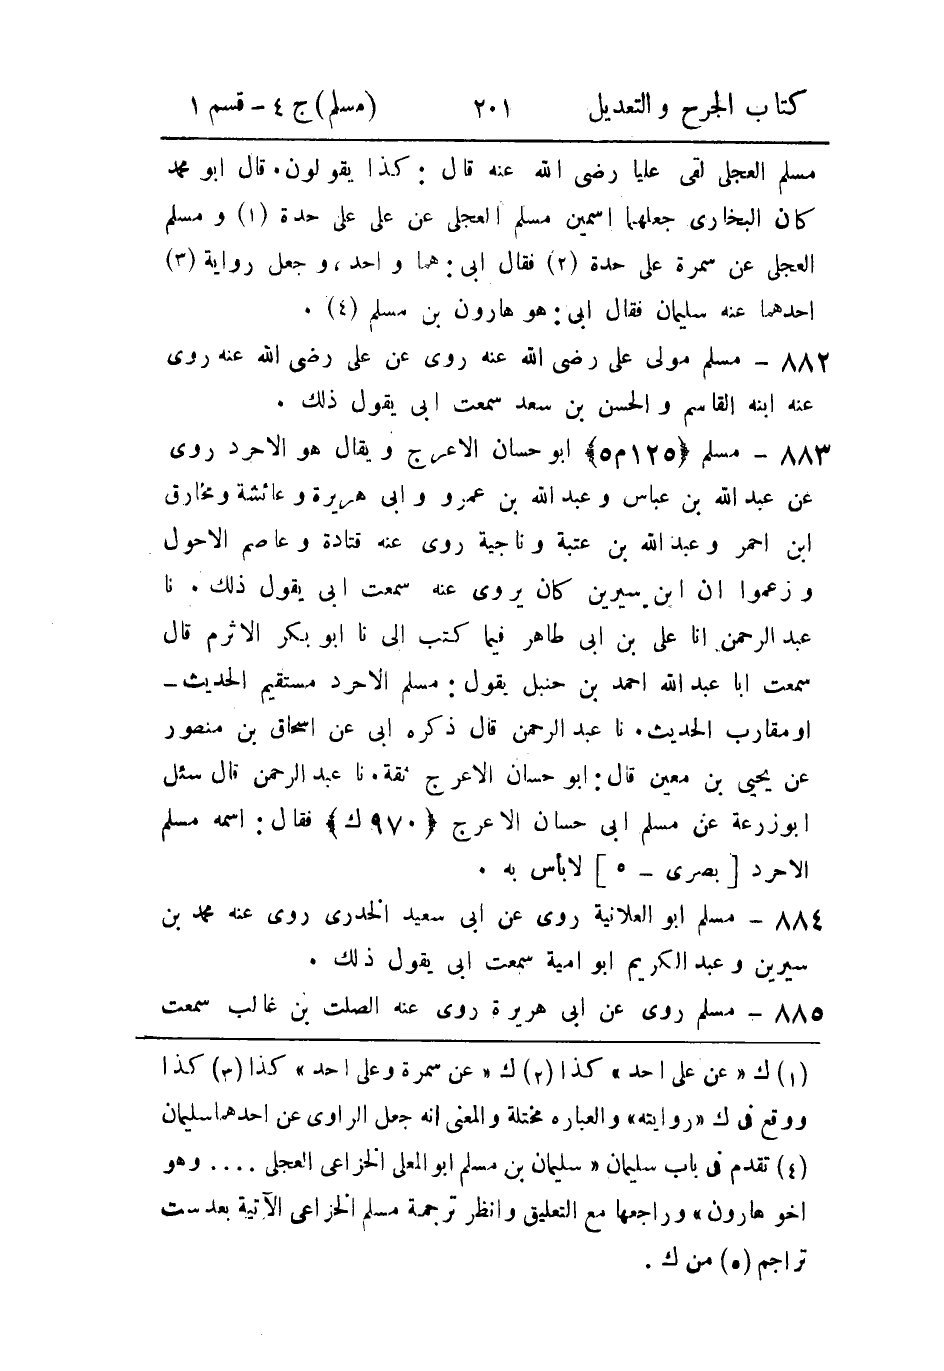 كتاب الجرح والتعديل ٢٠١ (مسلم) ج ٤ - قسم ١
مسلم العجلى لقى عليا رضى الله عنه قال : كذا يقولون . قال ابو محمد
كان البخارى جعلهما اسمين مسلم العجلى عن على على حدة (١) و مسلم
العجلى عن سمرة على حدة (٢) فقال ابى : هما واحد ، و جعل رواية (٣)
احدهما عنه سليمان فقال ابى : هو هارون بن مسلم (٤) .
٨٨٢ - مسلم مولى على رضى الله عنه روى عن على رضى الله عنه روى
عنه ابنه القاسم و الحسن بن سعد سمعت ابى يقول ذلك .
٨٨٣ - مسلم ﴿١٢٥م٥﴾ ابو حسان الاعرج و يقال هو الاحرد روى
عن عبد الله بن عباس و عبد الله بن عمرو و ابى هريرة و عائشة و مخارق
ابن احمر و عبد الله بن عتبة و ناجية روى عنه قتادة و عاصم الاحول
و زعموا ان ابن سيرين كان يروى عنه سمعت ابى يقول ذلك . نا
عبد الرحمن انا على بن ابى طاهر فيما كتب الى نا ابو بكر الاثرم قال
سمعت ابا عبد الله احمد بن حنبل يقول : مسلم الاحرد مستقيم الحديث -
او مقارب الحديث . نا عبد الرحمن قال ذكره ابى عن اسحاق بن منصور
عن يحيى بن معين قال : ابو حسان الاعرج ثقة . نا عبد الرحمن قال سئل
ابو زرعة عن مسلم ابى حسان الاعرج ﴿٩٧٠ك﴾ فقال : اسمه مسلم
الاحرد [ بصرى - ٥ ] لا بأس به .
٨٨٤ - مسلم ابو العلانية روى عن ابى سعيد الخدرى روى عنه محمد بن
سيرين و عبد الكريم ابو امية سمعت ابى يقول ذلك .
٨٨٥ - مسلم روى عن ابى هريرة روى عنه الصلت بن غالب سمعت
(١) ك « عن على احد » كذا (٢) ك « عن سمرة وعلى احد » كذا (٣) كذا
ووقع فى ك «روايته» والعباره مختلة والمعنى انه جعل الراوى عن احدهما سليمان
(٤) تقدم فى باب سليمان « سليمان بن مسلم ابو المعلى الخزاعى العجلى .... وهو
اخو هارون» وراجعها مع التعليق وانظر ترجمة مسلم الخزاعى الآتية بعد ست
تراجم (٥) من ك .